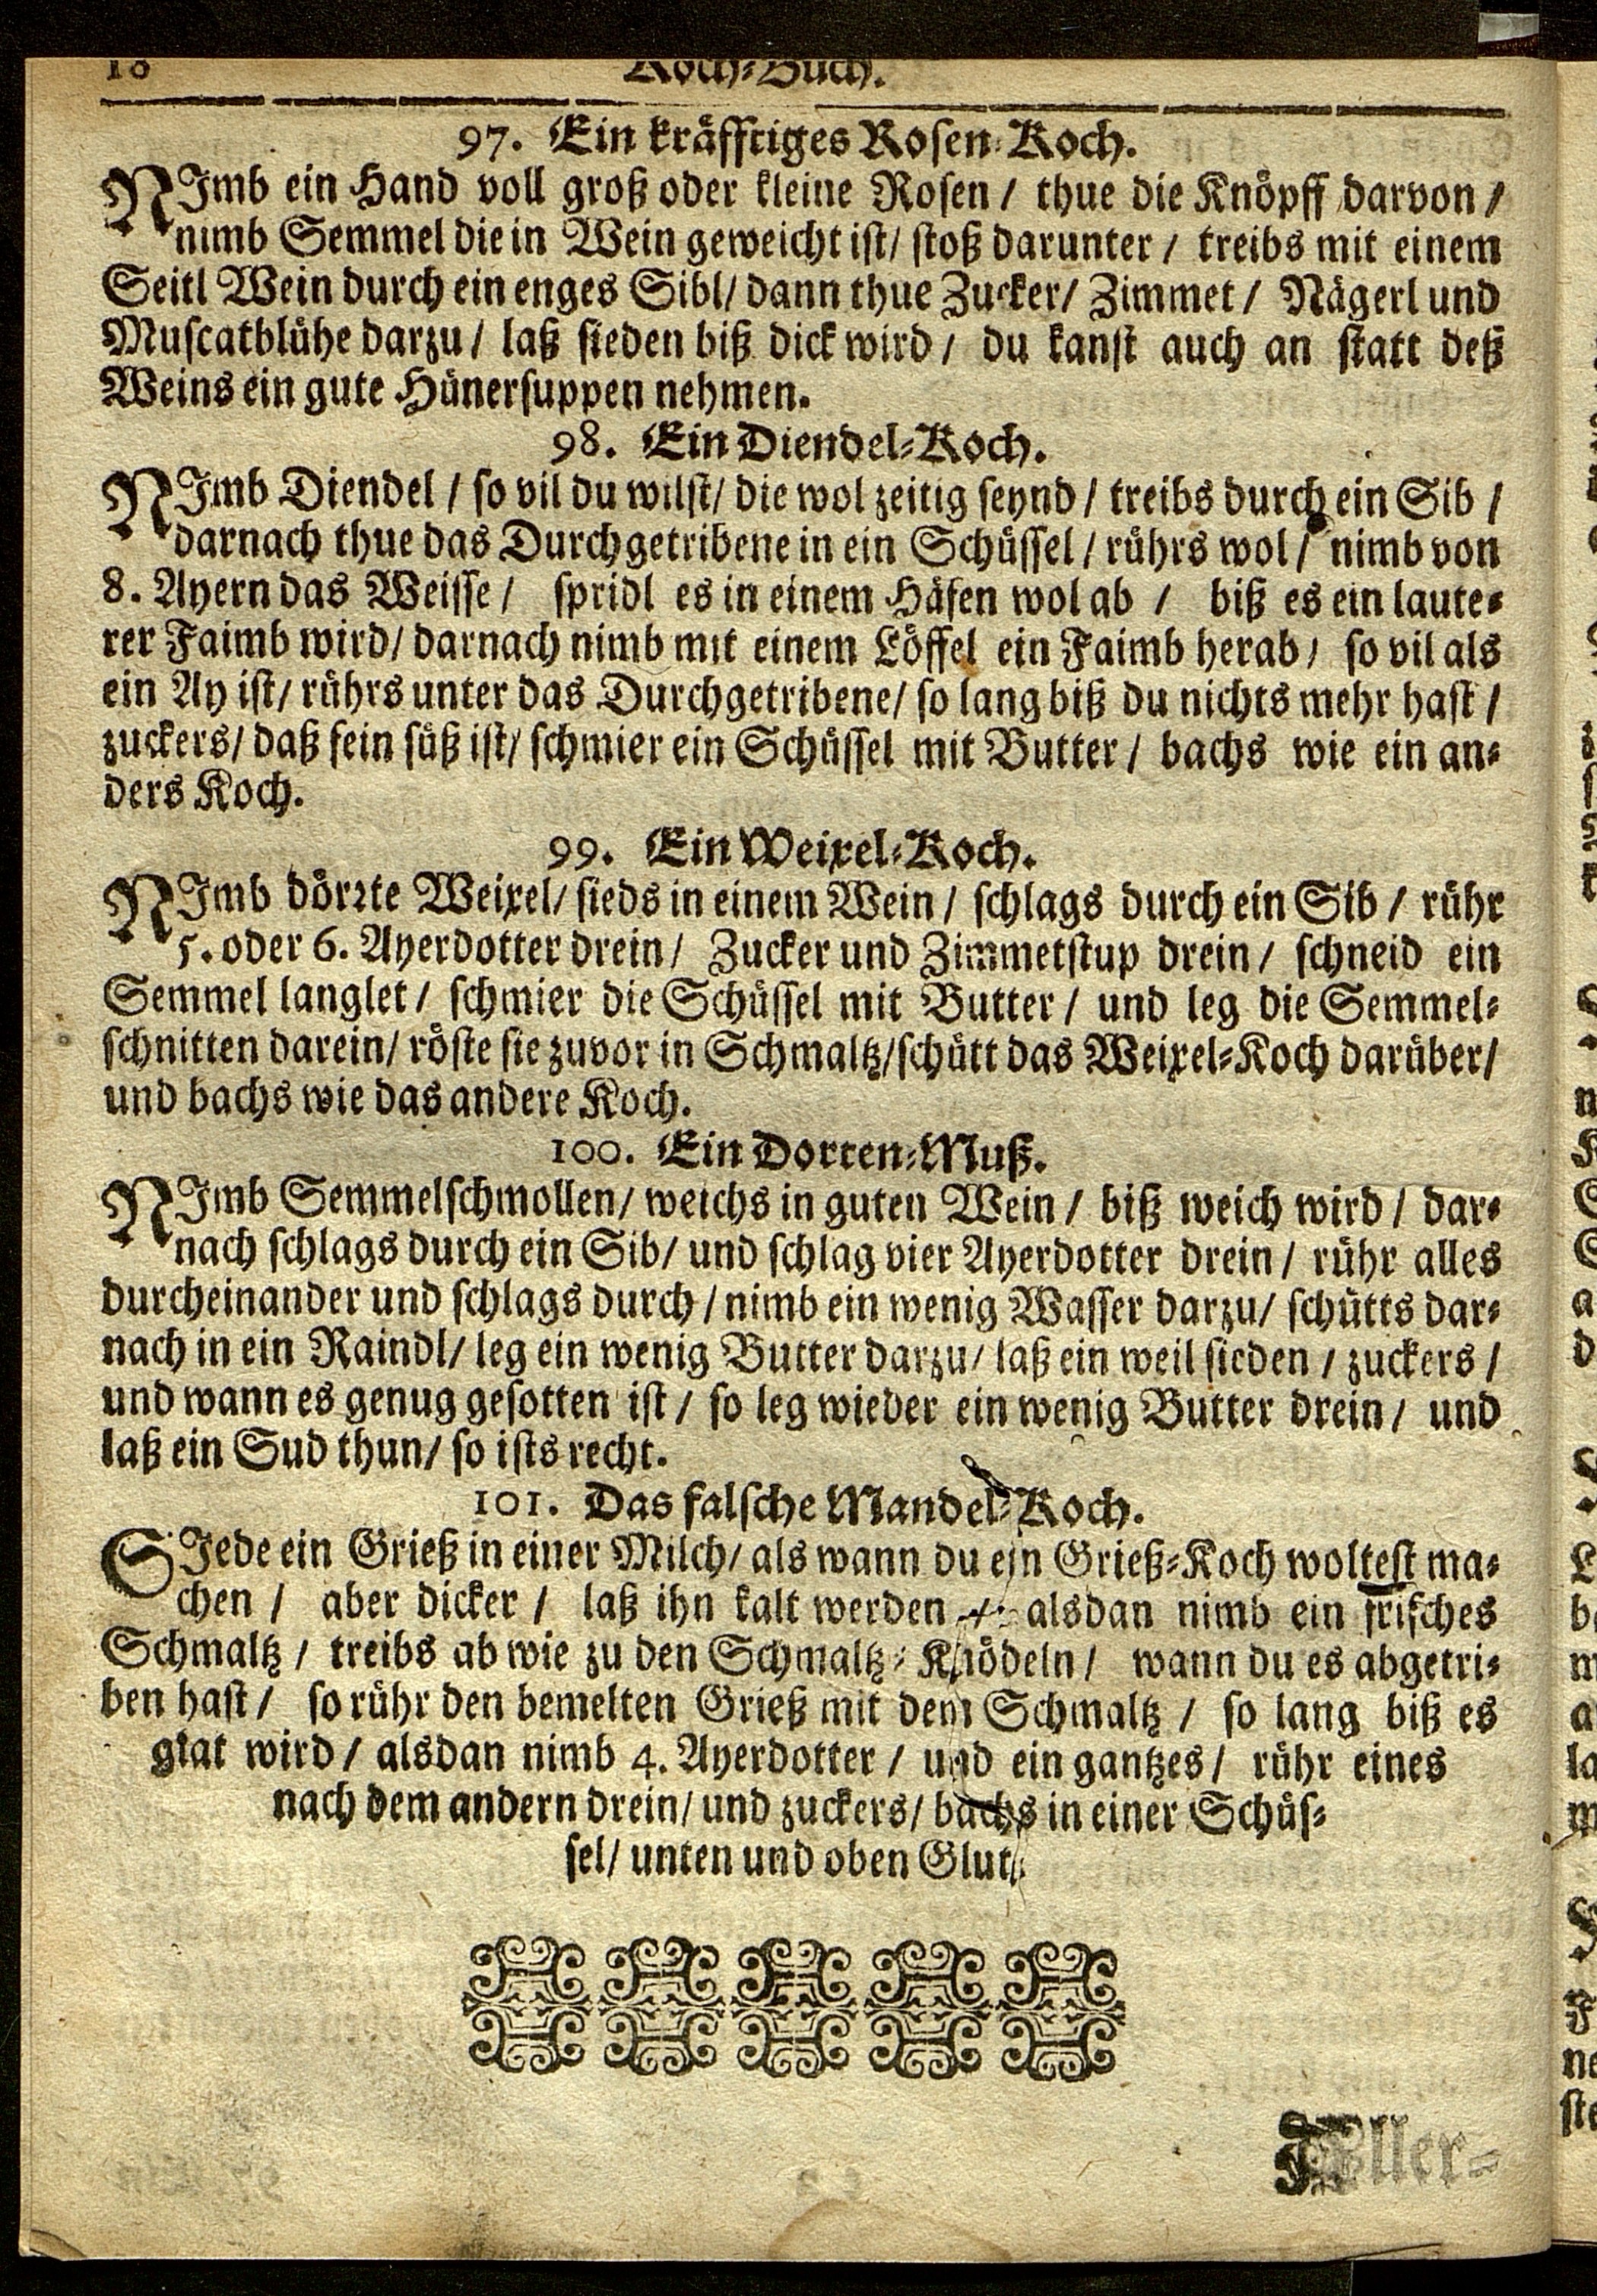 18 Koch-Buch.
97. Ein kräfftiges Rosen-Koch.
NImb ein Hand voll groß oder kleine Rosen / thue die Knöpff darvon /
nimb Semmel die in Wein geweicht ist/ stoß darunter / treibs mit einem
Seitl Wein durch ein enges Sibl/ dann thue Zucker/ Zimmet / Nägerl und
Muscatblühe darzu / laß sieden biß dick wird / du kanst auch an statt deß
Weins ein gute Hünersuppen nehmen.
98. Ein Diendel-Koch.
NImb Diendel / so vil du wilst/ die wol zeitig seynd / treibs durch ein Sib /
darnach thue das Durchgetribene in ein Schüssel / rührs wol / nimb von
8. Ayern das Weisse / spridl es in einem Häfen wol ab / biß es ein laute-
rer Faimb wird/ darnach nimb mit einem Löffel ein Faimb herab / so vil als
ein Ay ist/ rührs unter das Durchgetribene/ so lang biß du nichts mehr hast /
zuckers/ daß fein süß ist/ schmier ein Schüssel mit Butter / bachs wie ein an-
ders Koch.
99. Ein Weixel-Koch.
NImb dörrte Weixel/ sieds in einem Wein / schlags durch ein Sib / rühr
5. oder 6. Ayerdotter drein / Zucker und Zimmetstup drein / schneid ein
Semmel langlet / schmier die Schüssel mit Butter / und leg die Semmel-
schnitten darein/ röste sie zuvor in Schmaltz/schütt das Weixel-Koch darüber/
und bachs wie das andere Koch.
100. Ein Dorten-Muß.
NImb Semmelschmollen/ weichs in guten Wein / biß weich wird / dar-
nach schlags durch ein Sib/ und schlag vier Ayerdotter drein / rühr alles
durcheinander und schlags durch / nimb ein wenig Wasser darzu/ schütts dar-
nach in ein Raindl/ leg ein wenig Butter darzu/ laß ein weil sieden / zuckers /
und wann es genug gesotten ist / so leg wieder ein wenig Butter drein / und
laß ein Sud thun/ so ists recht.
101. Das falsche Mandel-Koch.
SIede ein Grieß in einer Milch/ als wann du ein Grieß-Koch woltest ma-
chen / aber dicker / laß ihn kalt werden / alsdan nimb ein frisches
Schmaltz / treibs ab wie zu den Schmaltz-Knödeln / wann du es abgetri-
ben hast / so rühr den bemelten Grieß mit dem Schmaltz / so lang biß es
glat wird / alsdan nimb 4. Ayerdotter / und ein gantzes / rühr eines
nach dem andern drein/ und zuckers/ bachs in einer Schüs-
sel/ unten und oben Glut.
Aller-